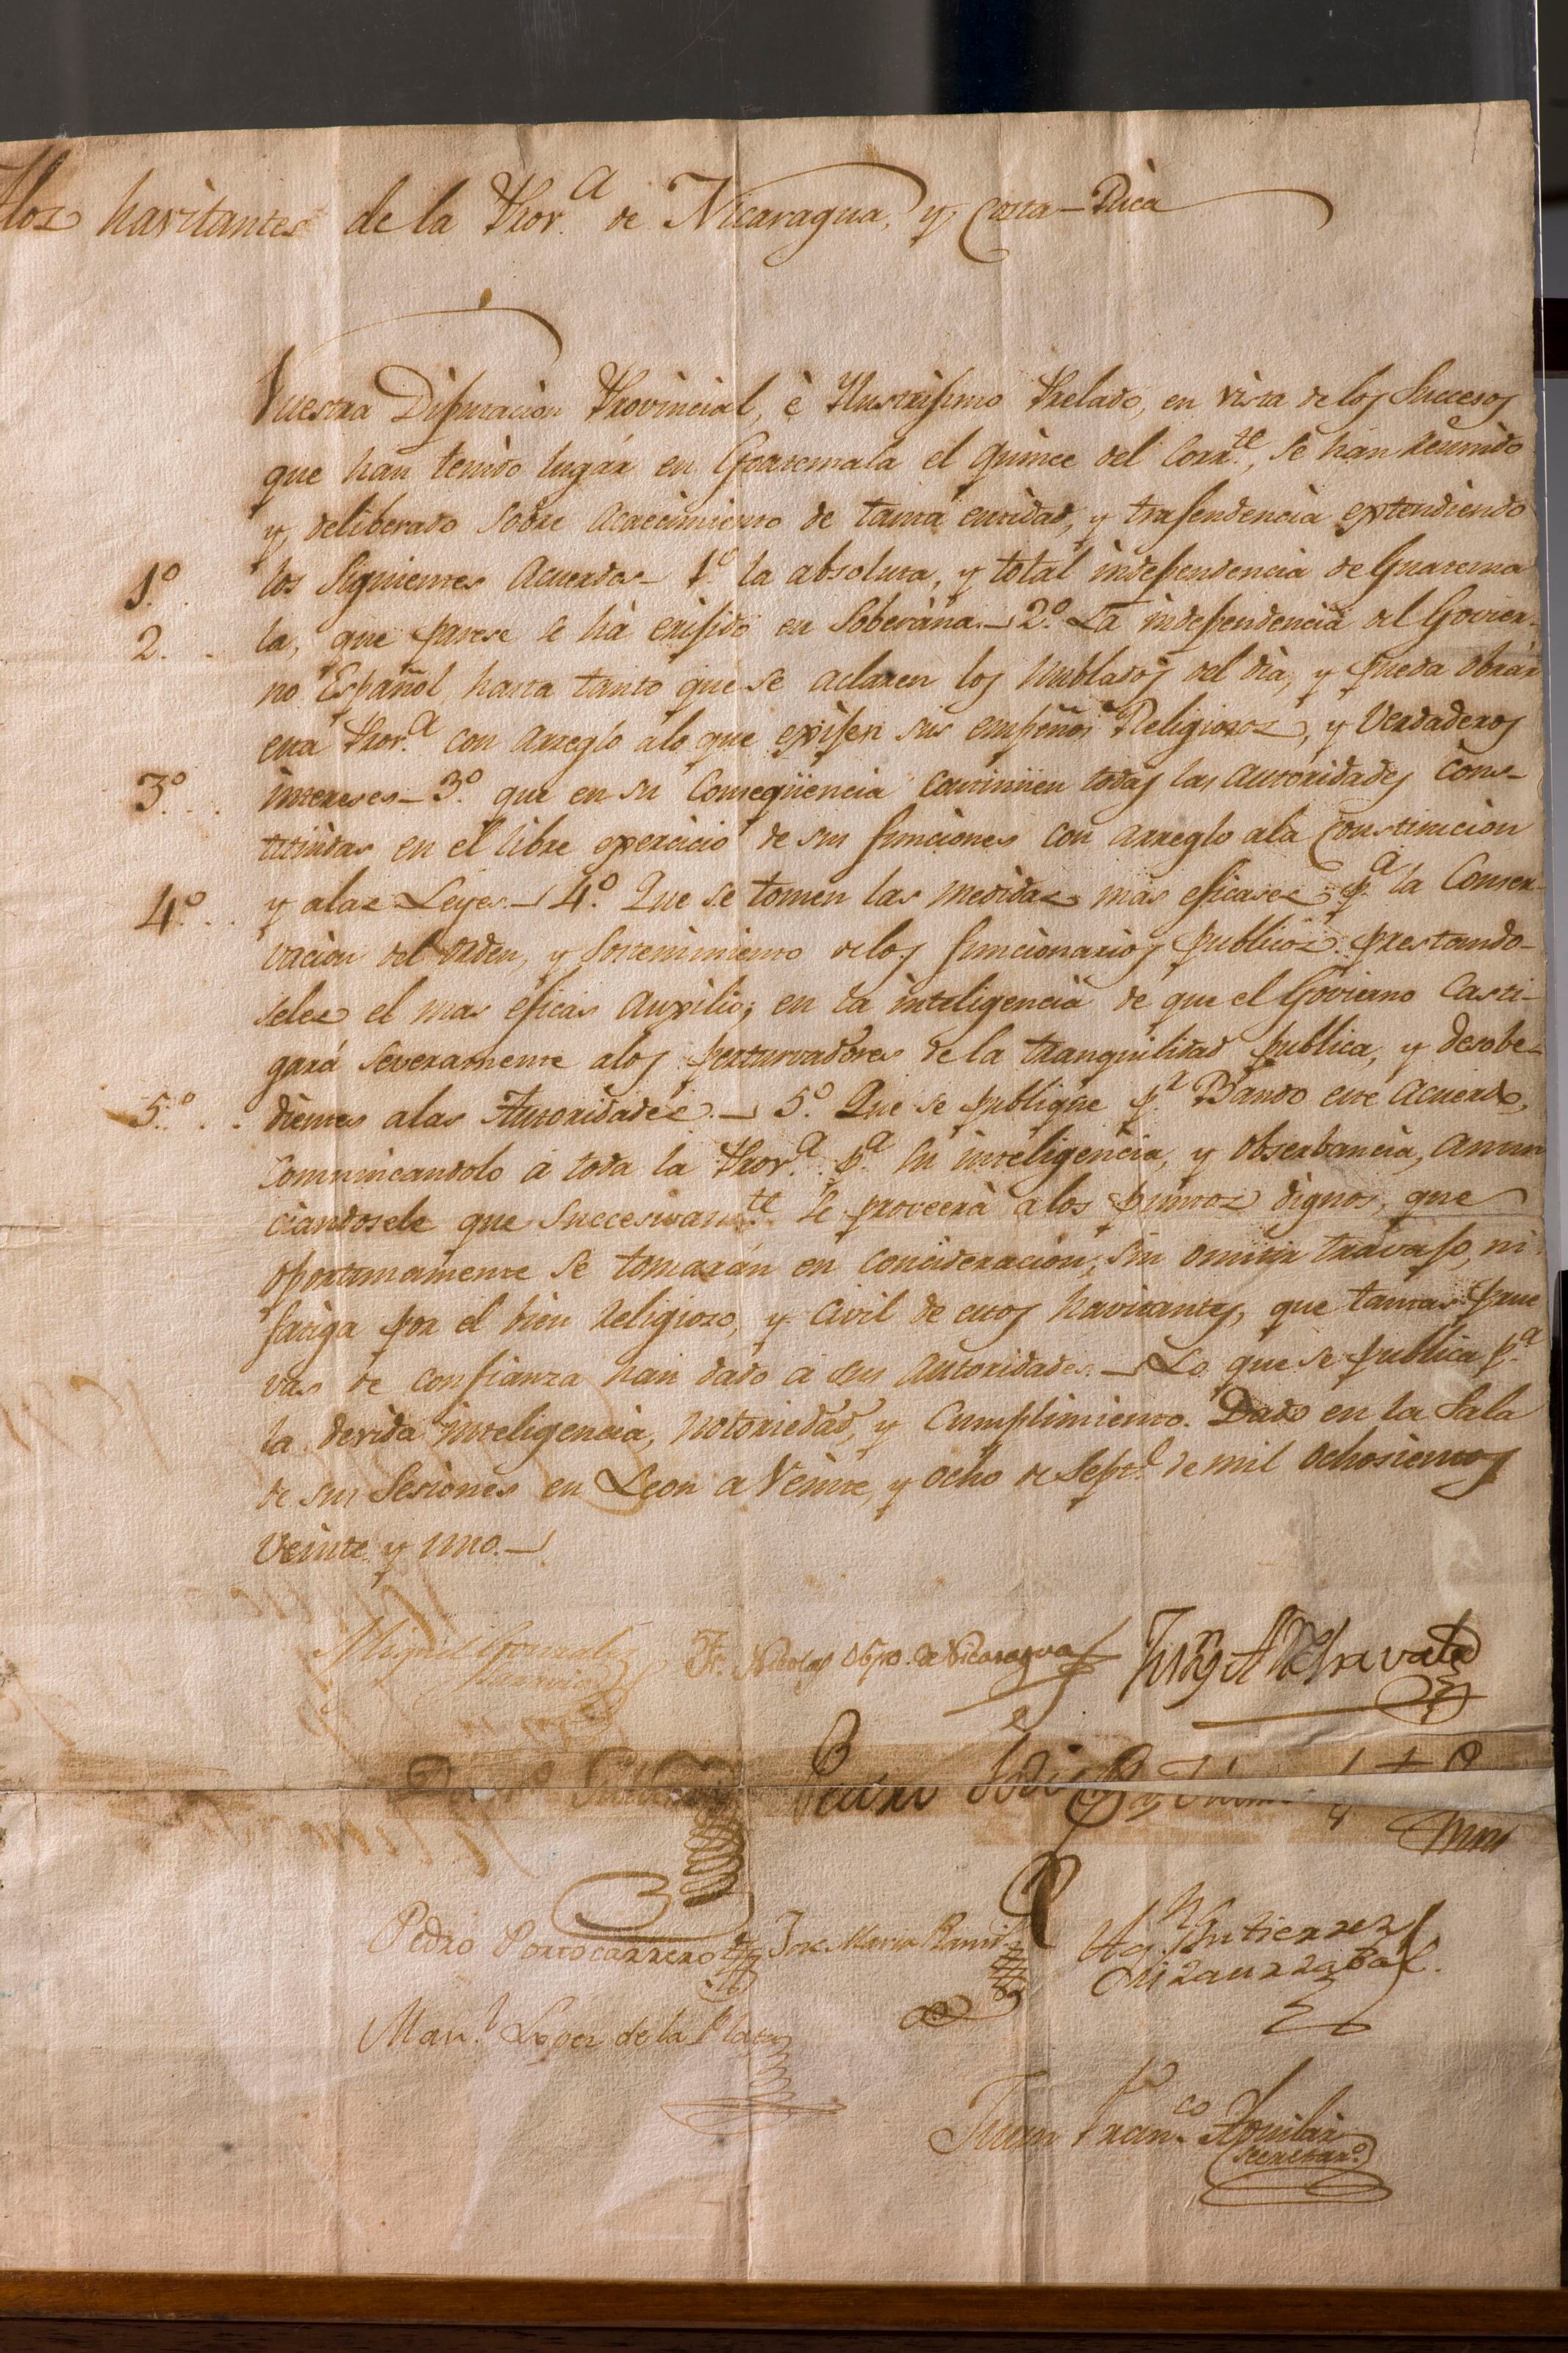 Alos havitantes de la Prov.a de Nicaragua, y Costa-Rica
Vuestra Diputacion Provincial, è Ylustrisimo Prelado, en vista de los Succesos
que han tenido lugár en Goatemala el quince del Corr.te, se han reunido
y deliberado sobre acaecimiento de tanta entidad, y trasendencia extendiendo
1.º los siguientes acuerdos_ 1.º la absoluta, y total independencia de Guatema
2. la, que parese se hà erijido en Soberana._ 2.º La independencia del Govier-
no Español, hasta tanto que se aclaren los nublados del dia, y pueda obrár
esta Prov.a con arreglo alo que exijen sus empeños Religiosos, y Verdaderos
3.º intereses_ 3.º que en su Conseqüencia continúen todas las autoridades cons-
titúidas en el libre exercicio de sus funciones con arreglo ala Constitucion
4.º y alas Leyes._ 4.º Que se tomen las medidas mas eficases p.a la Conser-
vacion del orden, y sostenimiento de los funcionarios publicos prestando-
seles el mas eficas auxilio; en la inteligencia de que el Govierno Casti-
gará severamente alos perturvadores de la tranquilidad publica, y desobe-
5.º dientes alas Autoridades._ 5.º Que se publique p.r Bando este acuerdo,
comunicandolo á toda la Prov.a p.a su inteligencia, y obserbancia, anun
ciandosele que succesivam.te se proveerà a los puntos dignos, que
oportunamente se tomarán en concideracion, sin omitir travajo, ni
fatiga por el bien Religioso, y Civil de estos havitantes, que tantas prue
vas de confianza han dado a sus autoridades._ Lo que se publica p.a
la devida inteligencia, notoriedad, y Cumplimiento. Dado en la Sala
de sus Sesiones en Leon a Veinte, y ocho de Sept.e de mil ochosientos
veinte y uno._
Miguel Gonzalez
Saravia
Fr. Nicolas Obpo. de Nicaragua
Pedro
Pedro Portocarrero
Jose Maria Ramir
Ag.n Gutierrez
Lizaurzabal.
Man.l Lopez de la Plata
Juan Fran.co Aguilar
Secretar.o